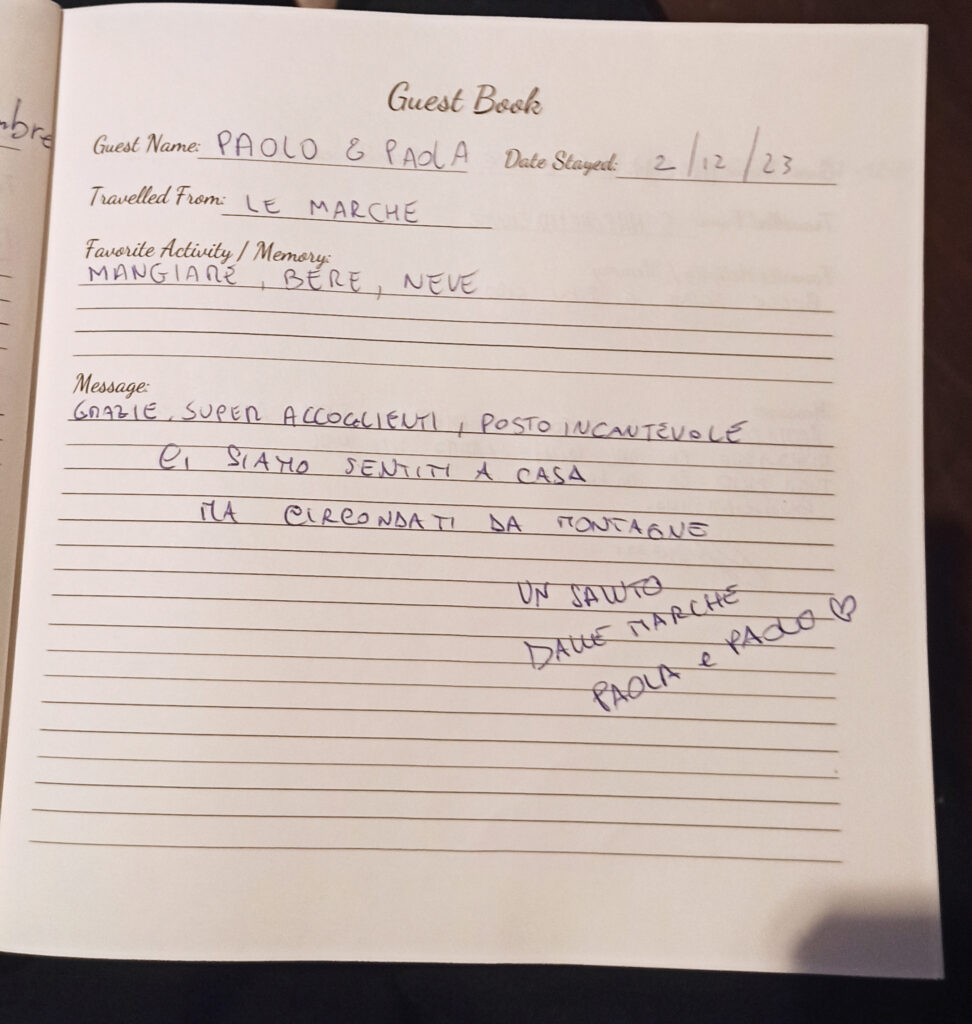 mbre
Guest Book
Guest Name: PAOLO & PAOLA Date Stayed: 2/12/23
Travelled From: LE MARCHE
Favorite Activity / Memory:
MANGIARE, BERE, NEVE
Message:
GRAZIE, SUPER ACCOGLIENTI, POSTO INCANTEVOLE
CI SIAMO SENTITI A CASA
MA CIRCONDATI DA MONTAGNE
UN SALUTO
DALLE MARCHE
PAOLA e PAOLO ♡